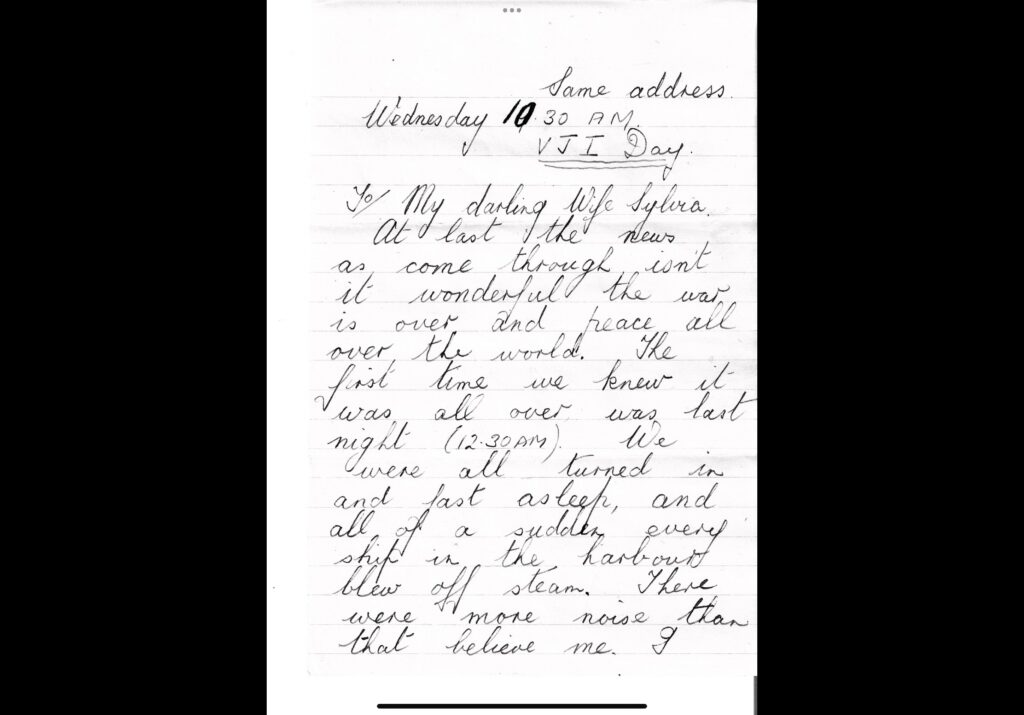 Same address.
Wednesday 10.30 AM.
V J I Day.
To/ My darling Wife Sylvia.
At last the news
as come through isn't
it wonderful the war
is over and peace all
over the world. The
first time we knew it
was all over was last
night (12.30AM). We
were all turned in
and fast asleep, and
all of a sudden every
ship in the harbour
blew off steam. There
were more noise than
that believe me. I